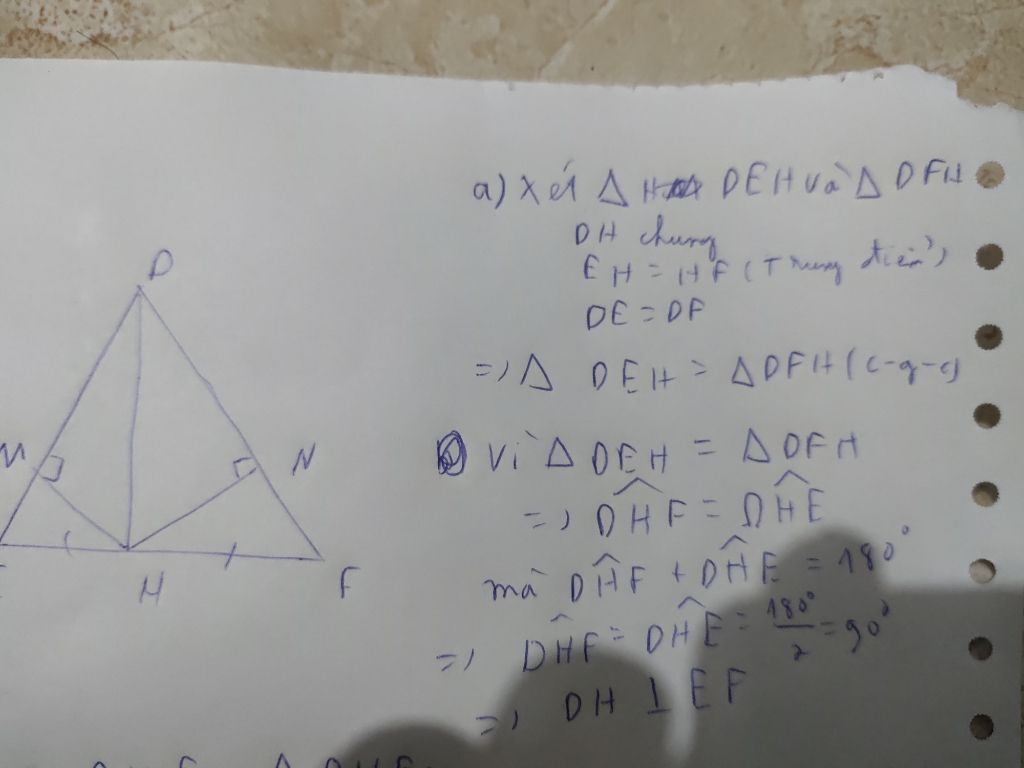 a) Xét Δ DEH và Δ DFH
DH chung
EH = HF (Trung điểm)
DE = DF
=> Δ DEH = Δ DFH (c-g-c)
Vì Δ DEH = Δ DFH
=> DĤF = DĤE
mà DĤF + DĤE = 180°
=> DĤF = DĤE = 180°/2 = 90°
=> DH ⊥ EF
D
M
N
H
F